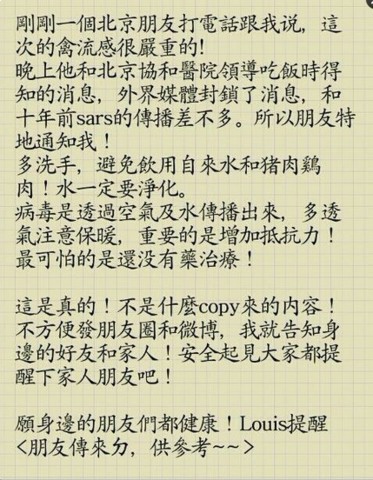 剛剛一個北京朋友打電話跟我说，這
次的禽流感很嚴重的!
晚上他和北京協和醫院領導吃飯時得
知的消息，外界媒體封鎖了消息，和
十年前sars的傳播差不多。所以朋友特
地通知我！
多洗手，避免飲用自來水和猪肉鷄
肉！水一定要淨化。
病毒是透過空氣及水傳播出來，多透
氣注意保暖，重要的是增加抵抗力！
最可怕的是還没有藥治療！
這是真的！不是什麼copy來的内容！
不方便發朋友圈和微博，我就告知身
邊的好友和家人！安全起見大家都提
醒下家人朋友吧！
願身邊的朋友們都健康！Louis提醒
<朋友傳來ㄉ，供參考~~>